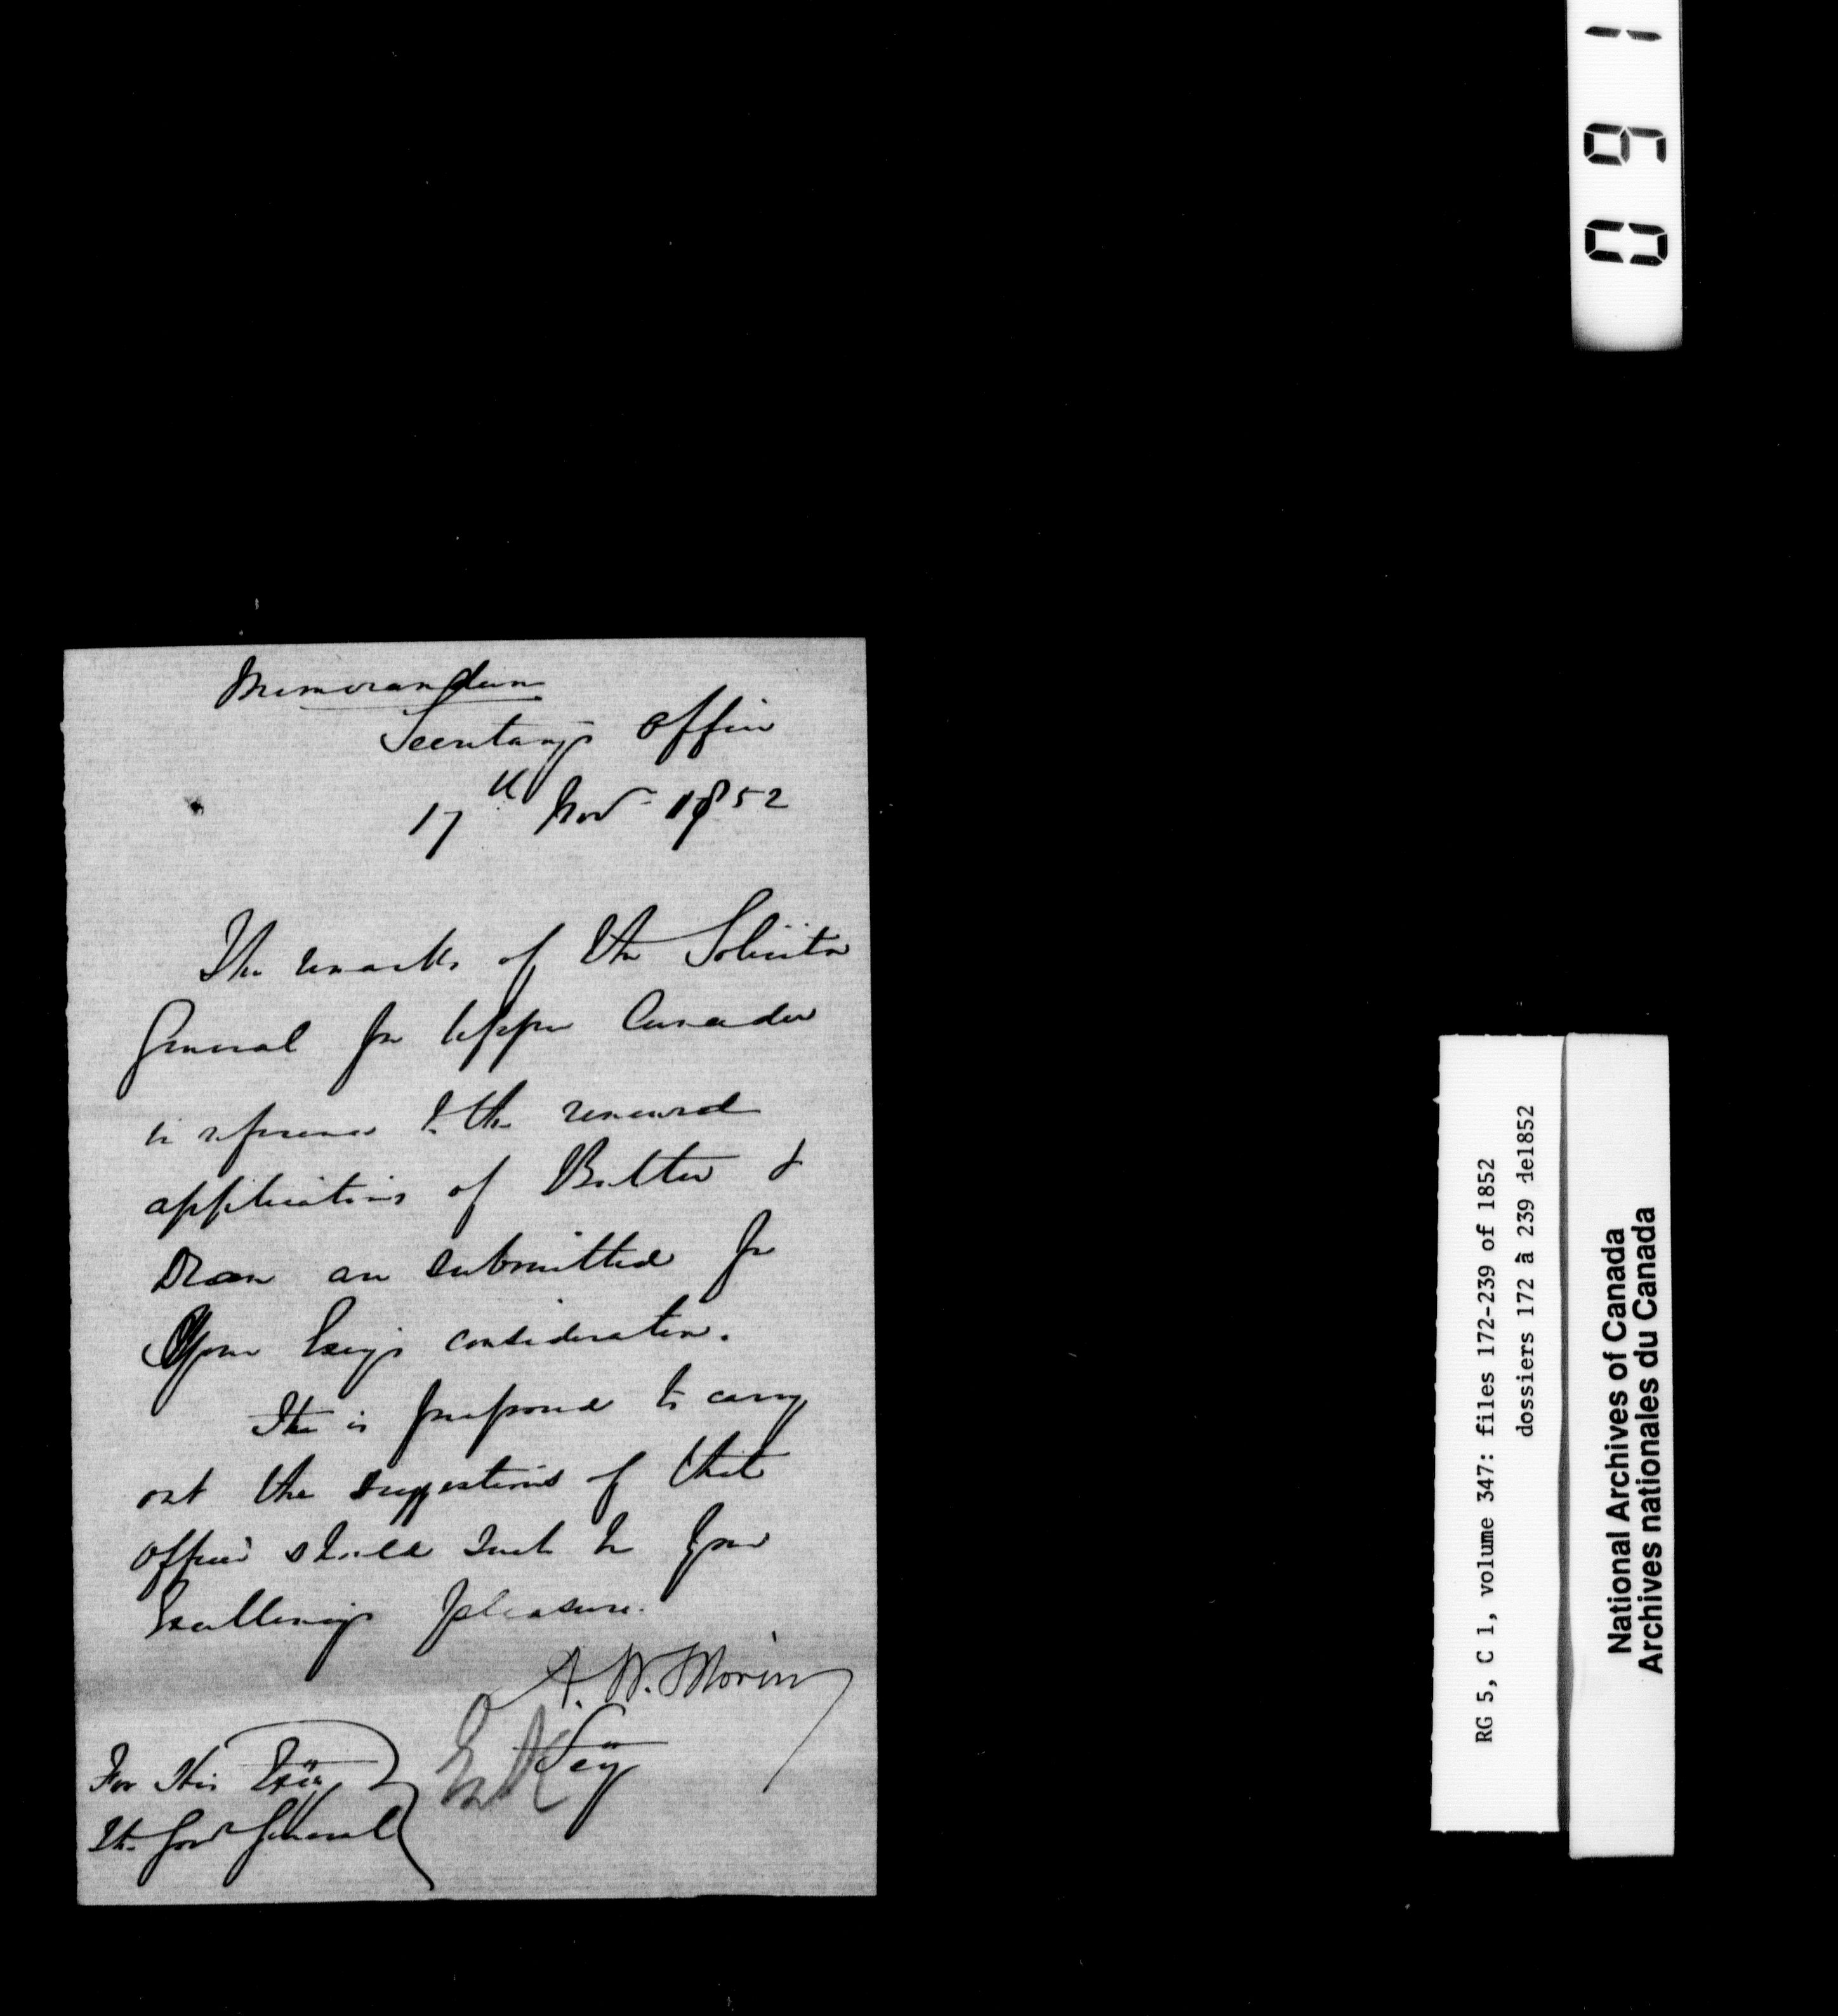 Memorandum
Secretary's Office
17th Nov 1852
The remarks of the Solicitor
General for Upper Canada
in reference to the renewed
applications of Butler &
are submitted for
Your Excy's consideration.
It is proposed to carry
out the suggestions of that
officer should such be Your
Excellency's pleasure.
A. N. Morin
Secy
E&K
For His Excy
The Govr General
160
RG 5, C 1, volume 347: files 172-239 of 1852
dossiers 172 à 239 de1852
National Archives of Canada
Archives nationales du Canada